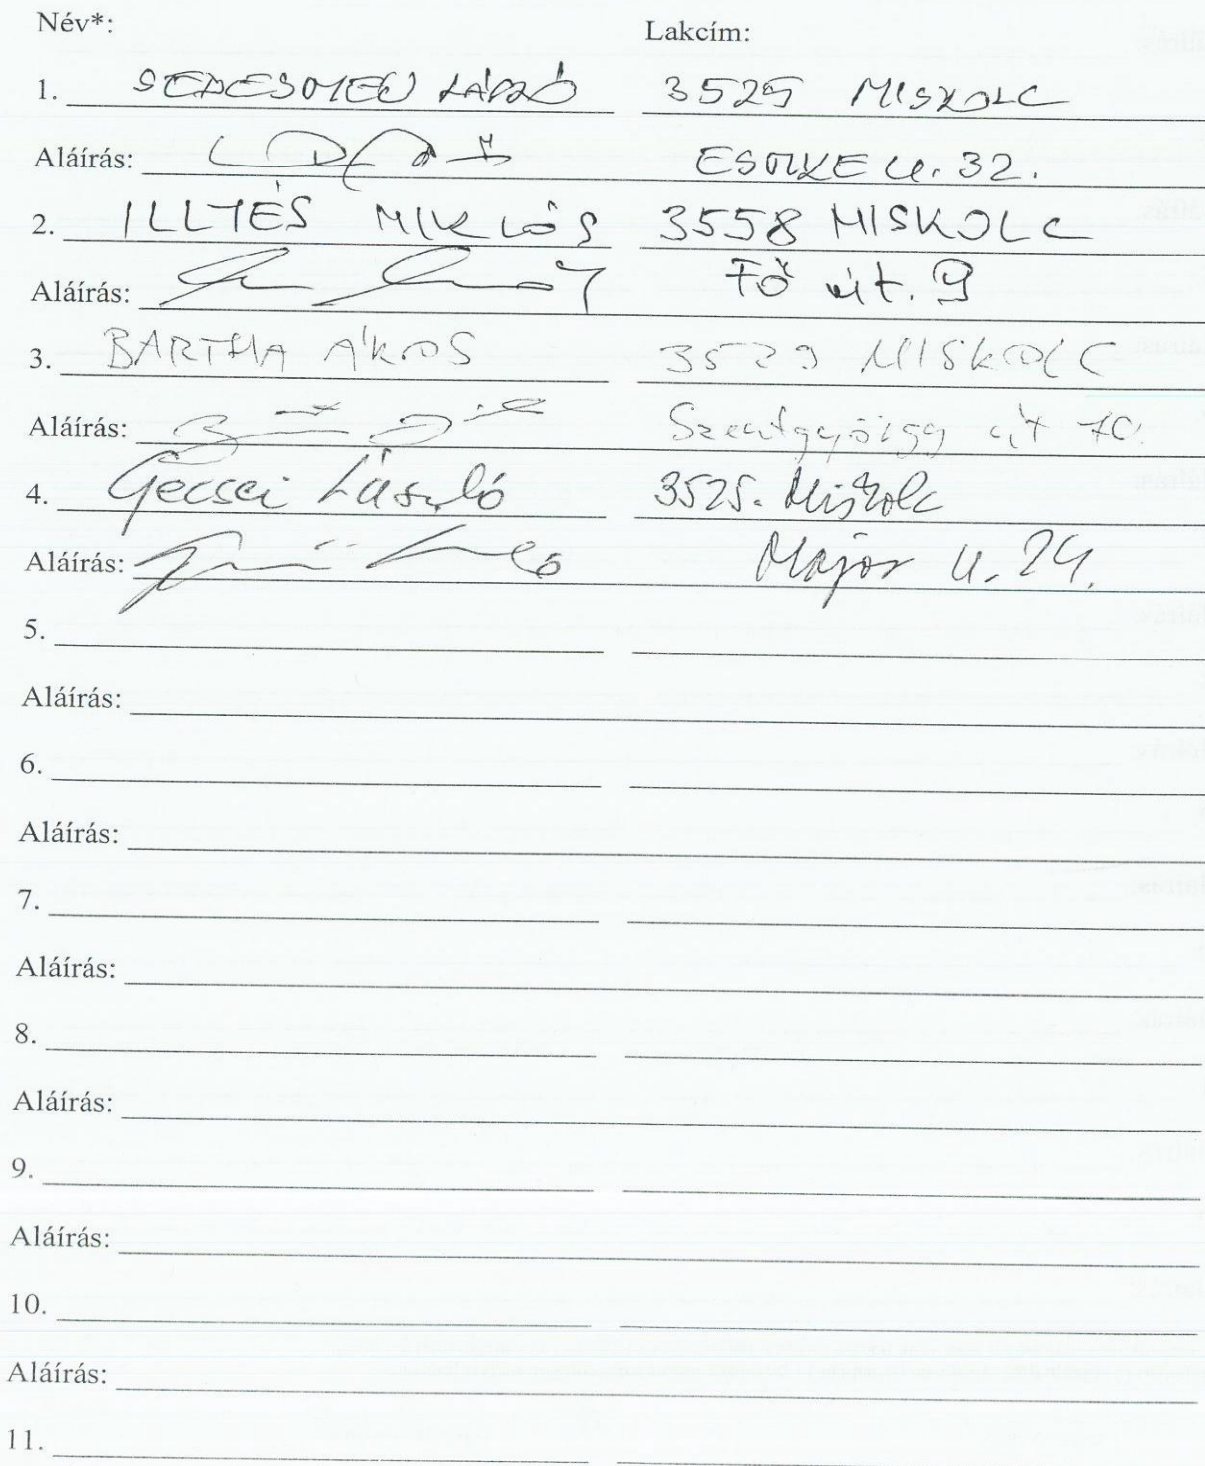 Név*: Lakcím:
1. LÁSZLÓ 3525 MISKOLC
Aláírás: ESZTIKE U. 32.
2. ILLYÉS MIKLÓS 3558 MISKOLC
Aláírás: Fő út. 9
3. BARTHA ÁKOS 3529 MISKOLC
Aláírás: Szentgyörgy út 70.
4. Gecsei László 3525. Miskolc
Aláírás: Major u. 24.
5.
Aláírás:
6.
Aláírás:
7.
Aláírás:
8.
Aláírás:
9.
Aláírás:
10.
Aláírás:
11.